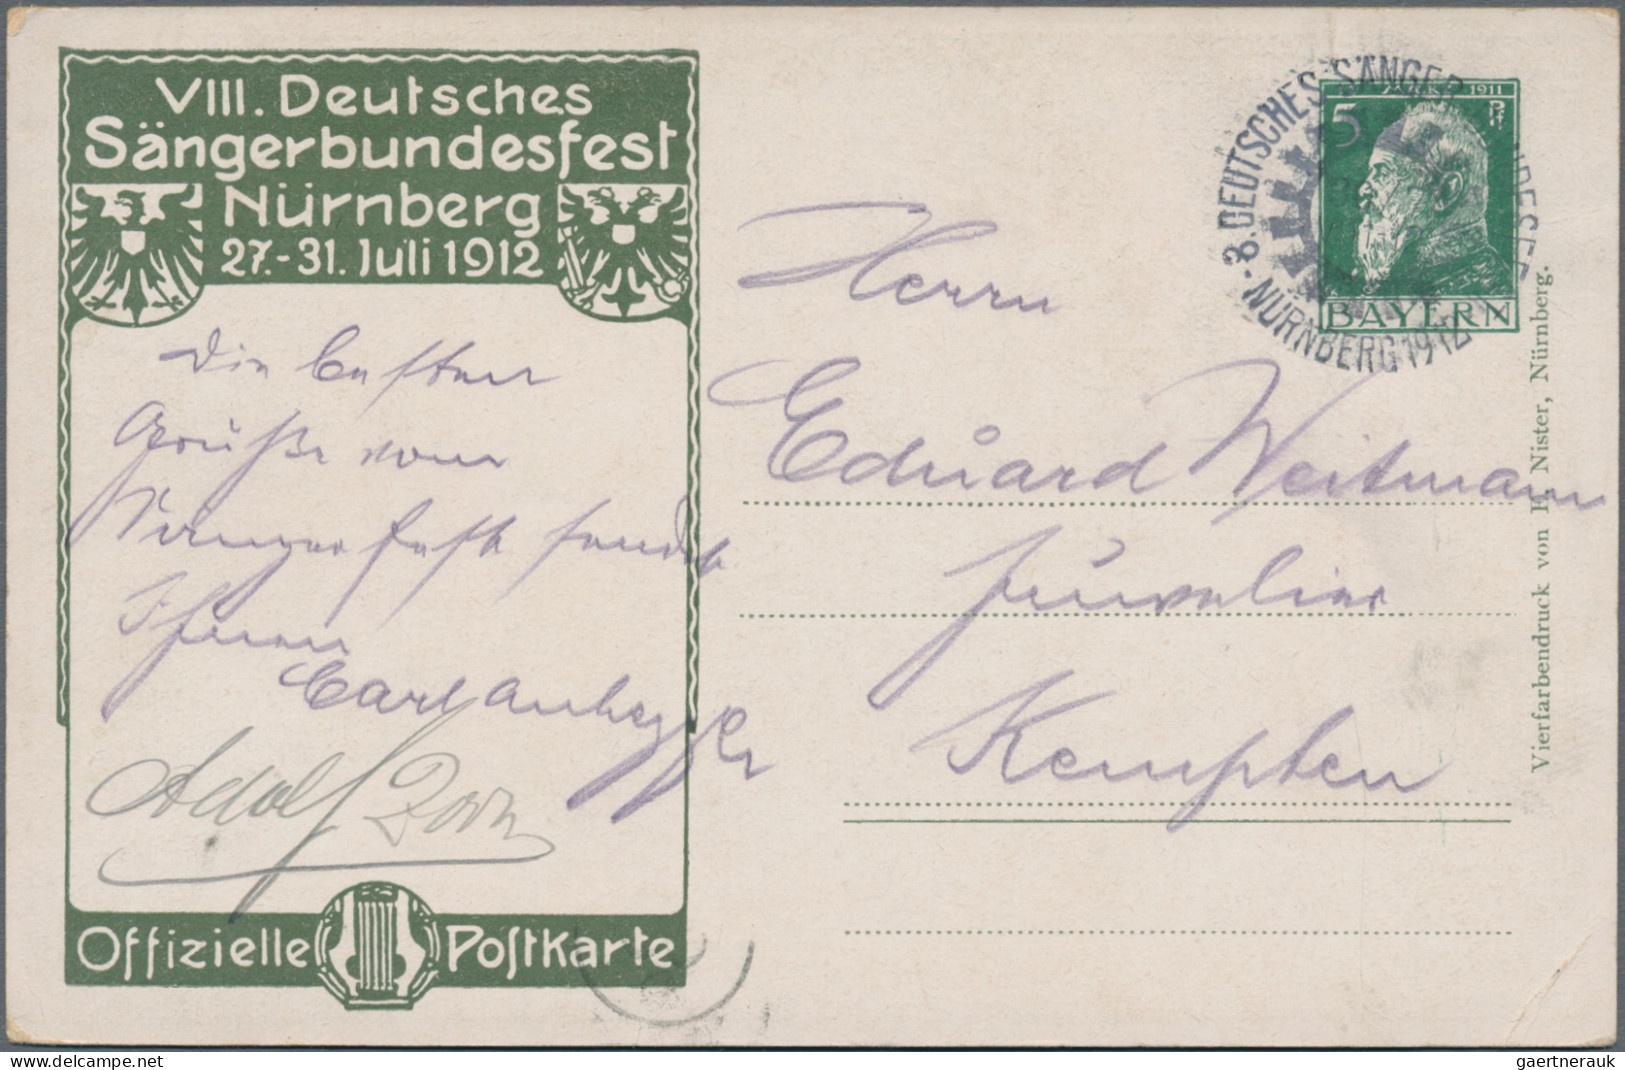 VIII. Deutsches
Sängerbundesfest
Nürnberg
27.-31. Juli 1912
Die besten
Grüße vom
Sängerfest sendet
Ihnen
Carl
Adolf
Offizielle Postkarte
8. DEUTSCHES SÄNGERBUNDESFEST
NÜRNBERG 1912
1911
5 Pf
BAYERN
Herrn
Eduard Weitmann
Juwelier
Kempten
Vierfarbendruck von E. Nister, Nürnberg.
delcampe.net
gaertnerauk